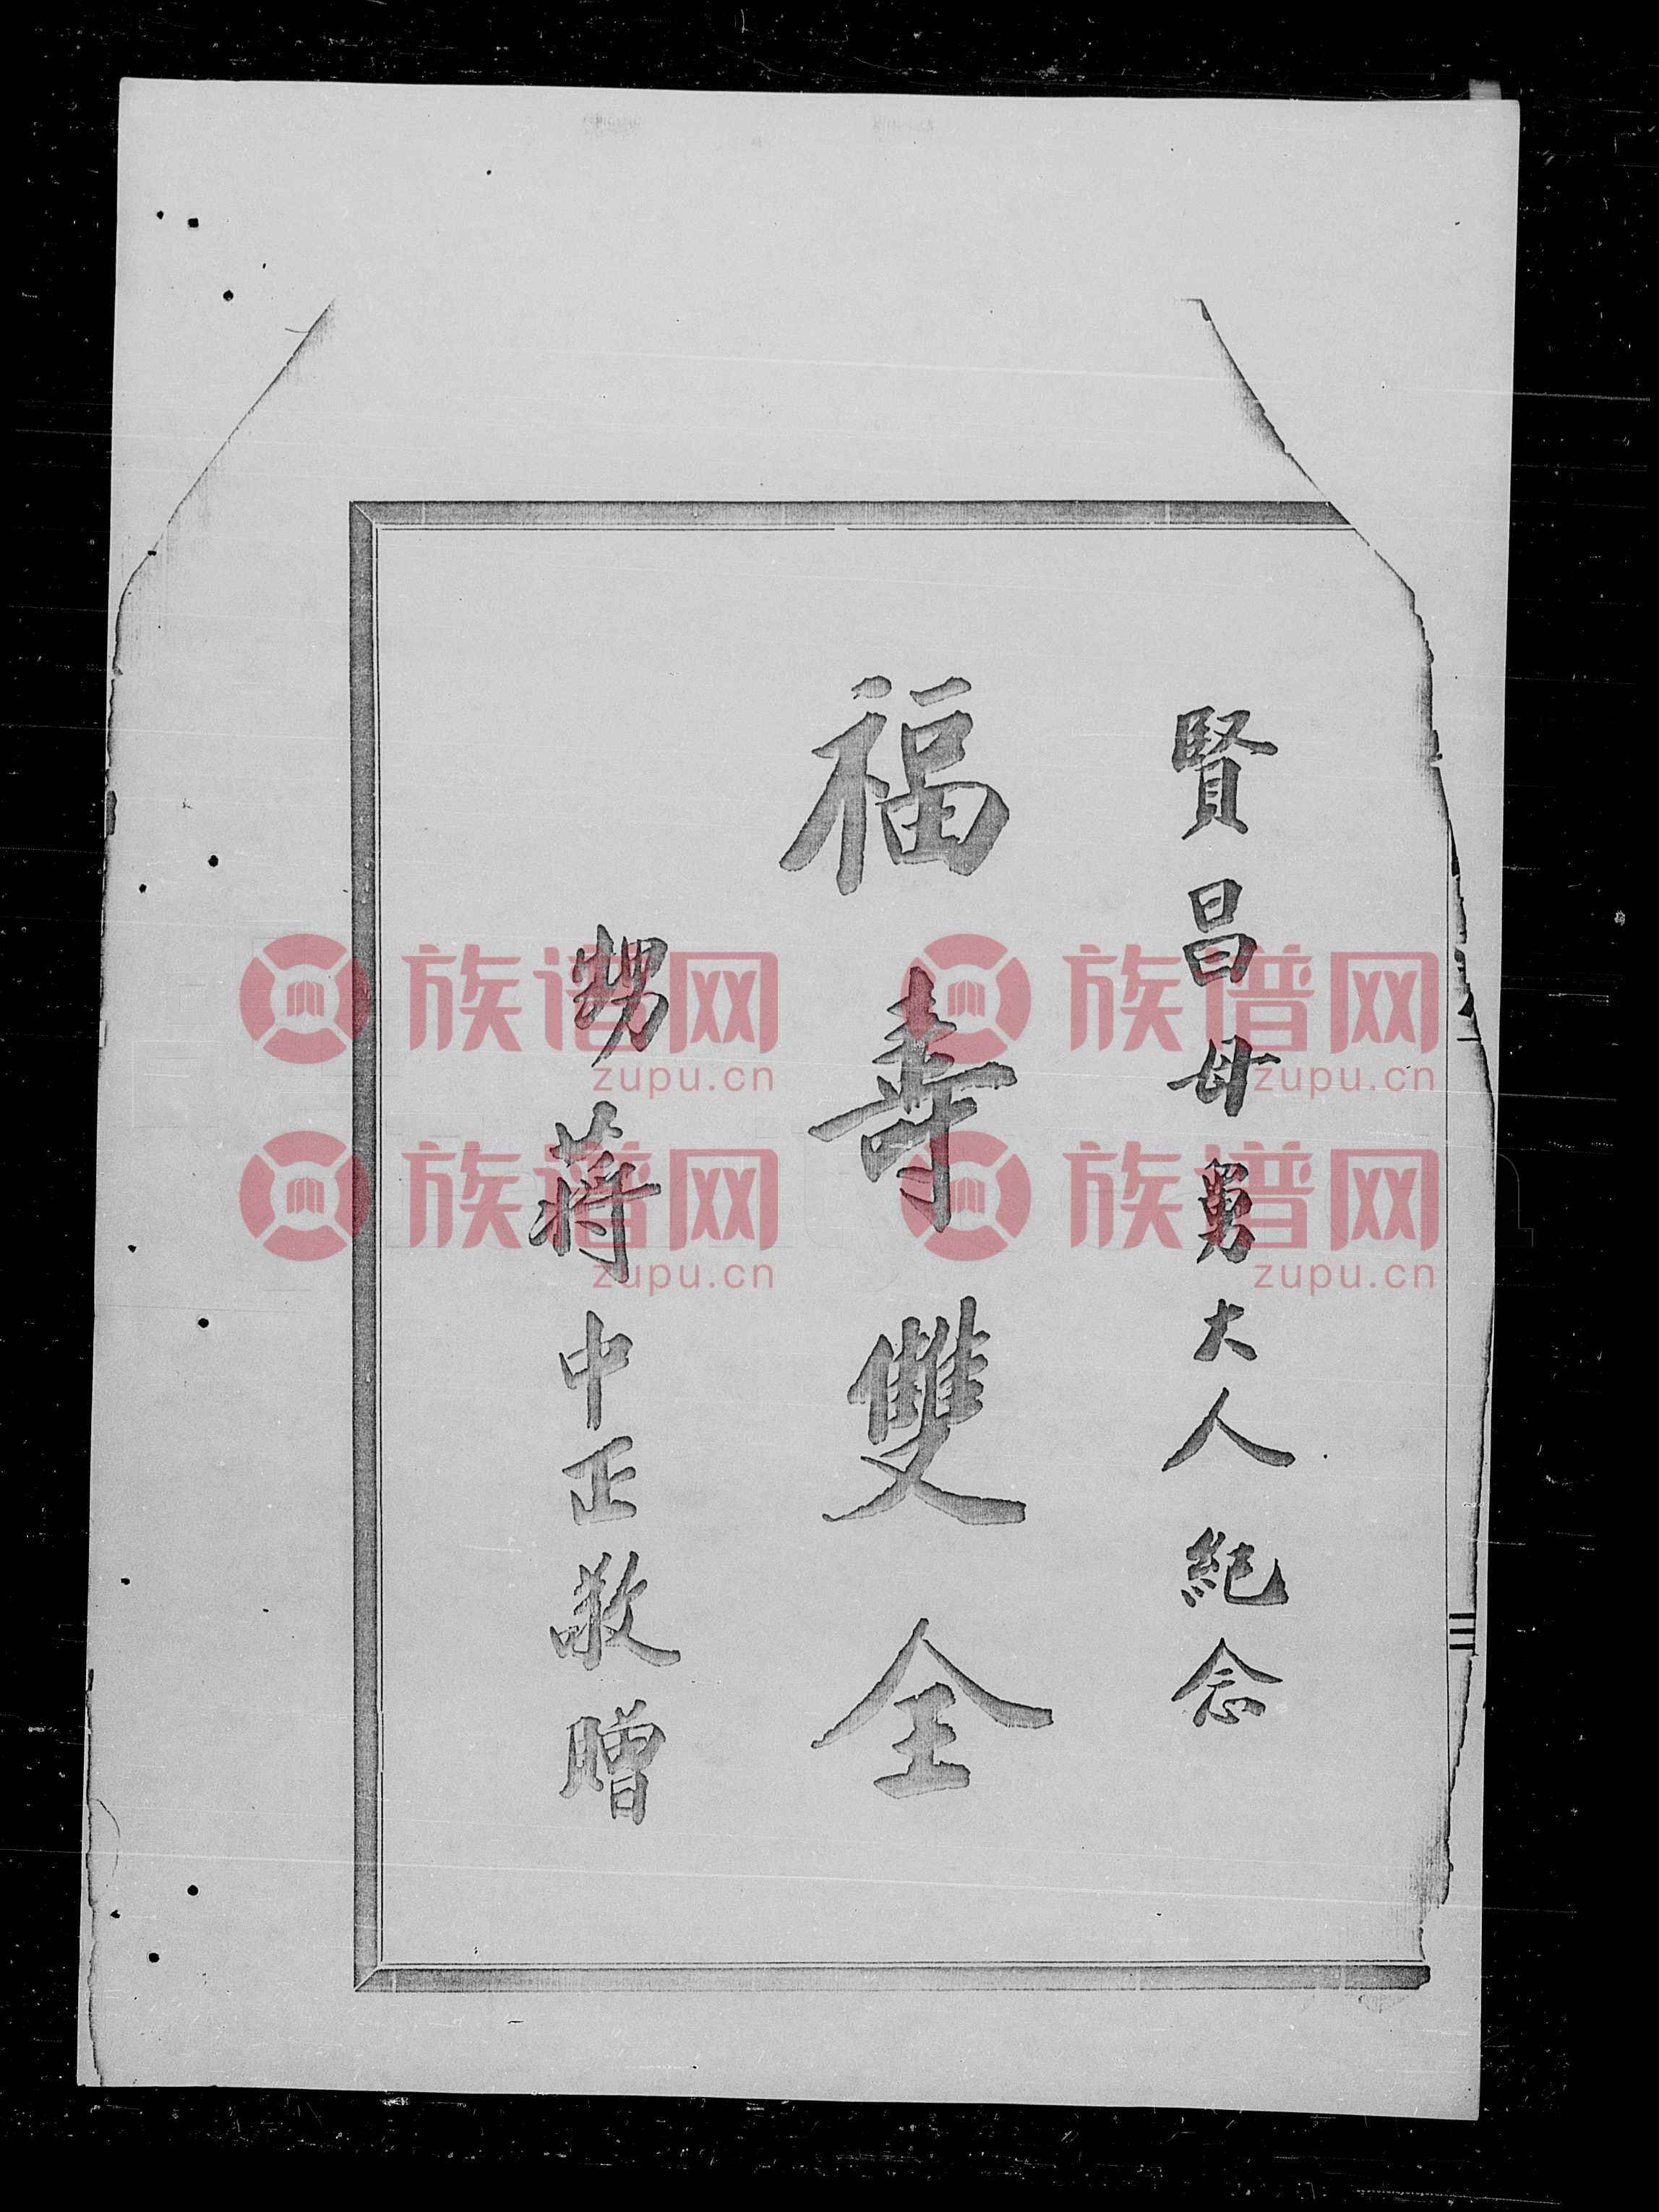 賢昌母舅大人紀念
福壽雙全
甥蔣中正敬贈
族谱网
zupu.cn
族谱网
zupu.cn
族谱网
zupu.cn
族谱网
zupu.cn